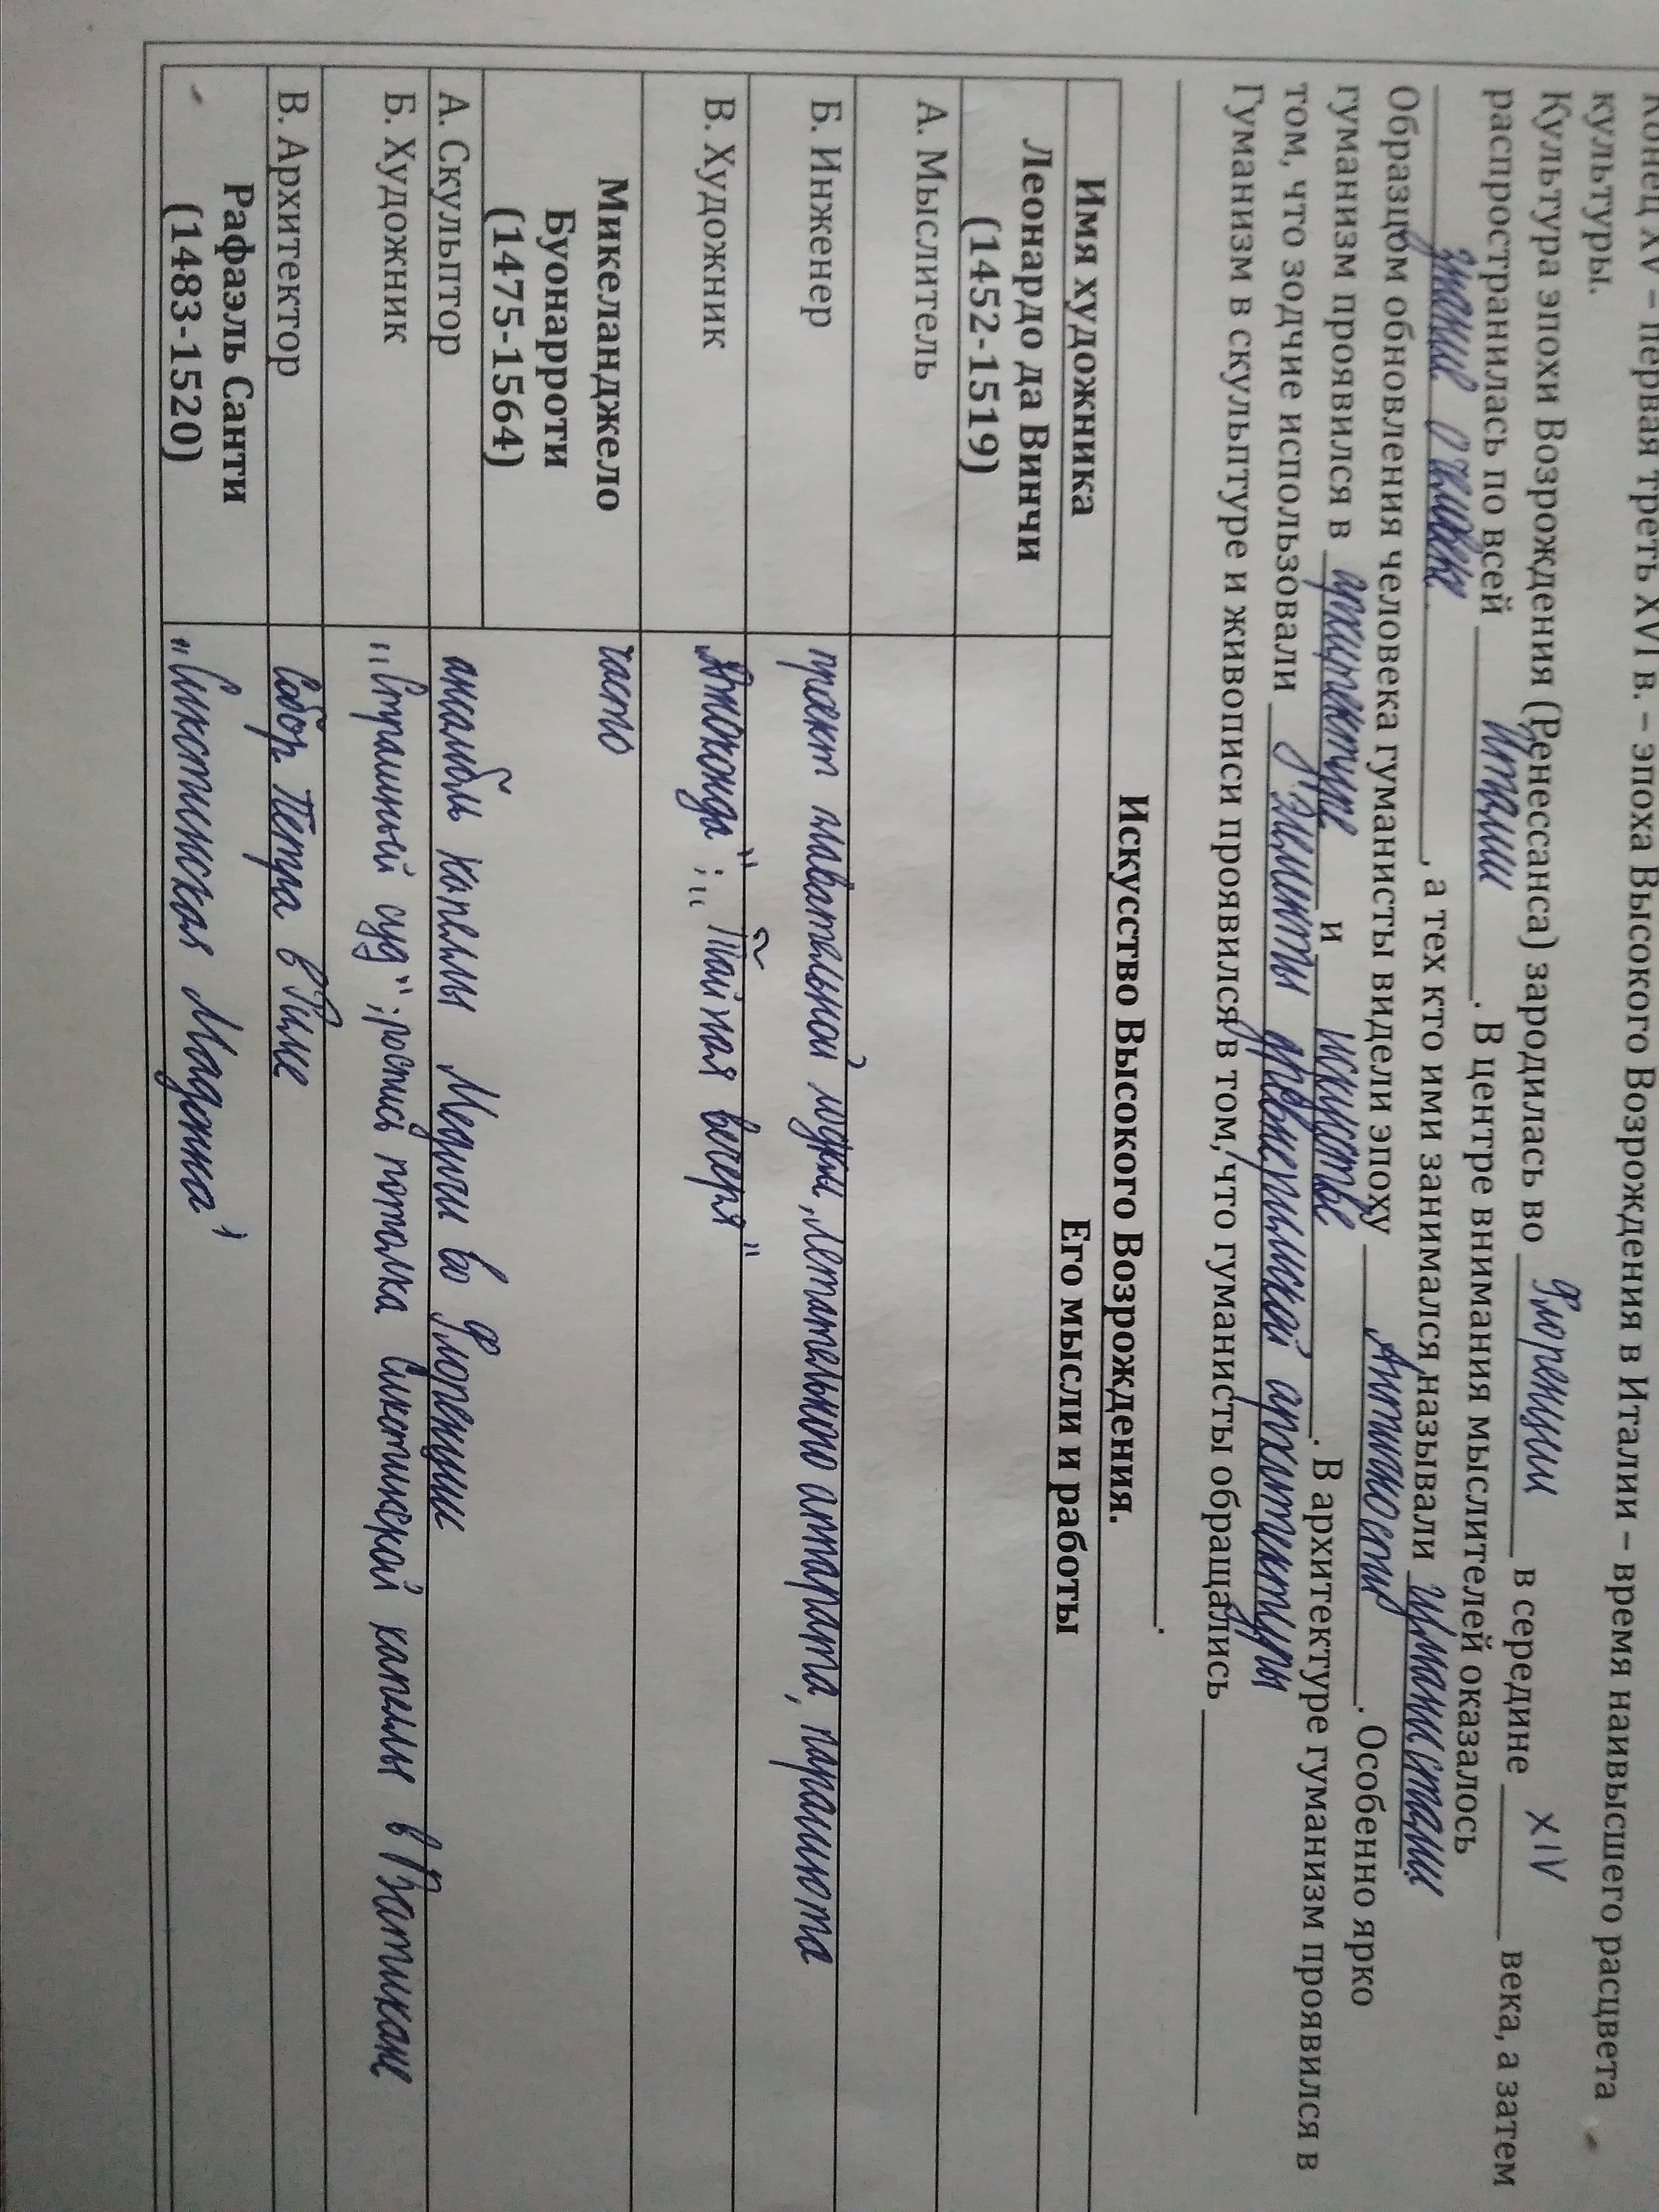 Конец XV – первая треть XVI в. – эпоха Высокого Возрождения в Италии – время наивысшего расцвета
культуры.
Культура эпохи Возрождения (Ренессанса) зародилась во Флоренции в середине XIV века, а затем
распространилась по всей Италии. В центре внимания мыслителей оказалось
знание о человеке, а тех кто ими занимался, называли гуманистами
Образцом обновления человека гуманисты видели эпоху Античности. Особенно ярко
гуманизм проявился в архитектуре и искусстве. В архитектуре гуманизм проявился в
том, что зодчие использовали элементы древнеримской архитектуры
Гуманизм в скульптуре и живописи проявился в том, что гуманисты обращались
.
Искусство Высокого Возрождения.
Имя художника Его мысли и работы
Леонардо да Винчи
(1452-1519)
А. Мыслитель
Б. Инженер проект плавательной лодки, летательного аппарата, парашюта
В. Художник „Джоконда"; „Тайная вечеря"
Микеланджело часто
Буонарроти
(1475-1564)
А. Скульптор ансамбль капеллы Медичи во Флоренции
Б. Художник „Страшный суд"; роспись потолка Сикстинской капеллы в Ватикане
В. Архитектор Собор Петра в Риме
Рафаэль Санти
(1483-1520) „Сикстинская Мадонна"